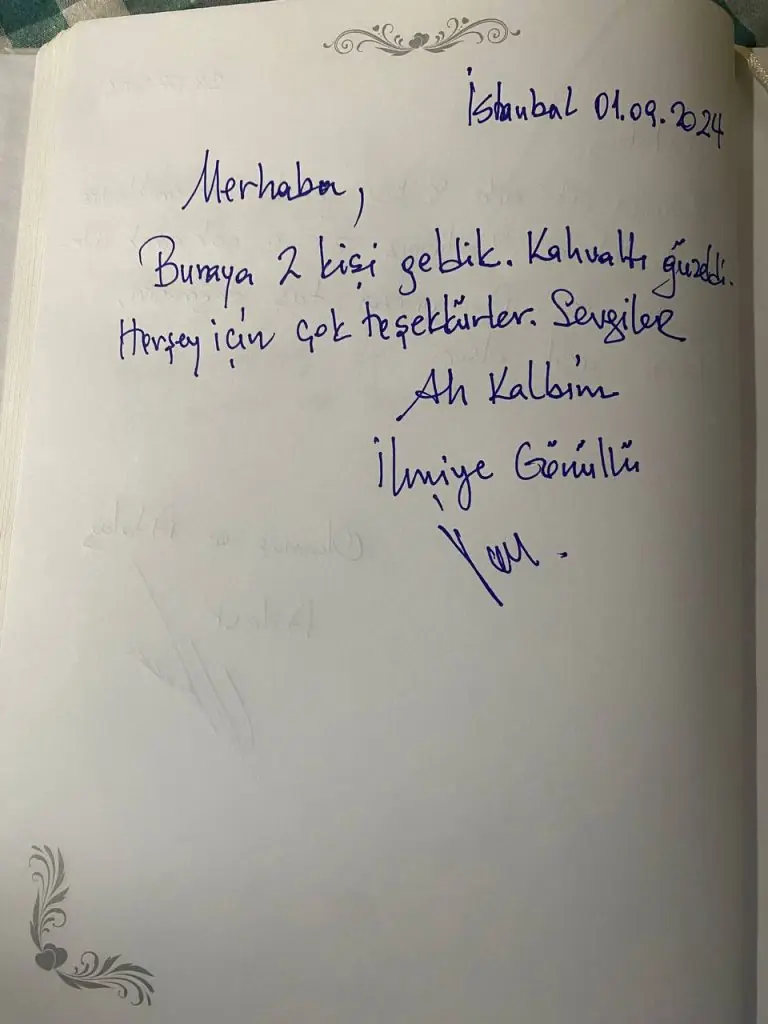 İstanbul 01.09.2024
Merhaba,
Buraya 2 kişi geldik. Kahvaltı güzeldi.
Herşey için çok teşekkürler. Sevgiler
Ah Kalbim
İlmiye Gönüllü